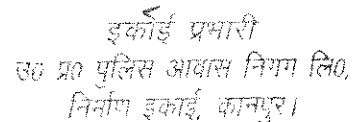 इकाई प्रभारी
उ0 प्र0 पुलिस आवास निगम लि0,
निर्माण इकाई, कानपुर।